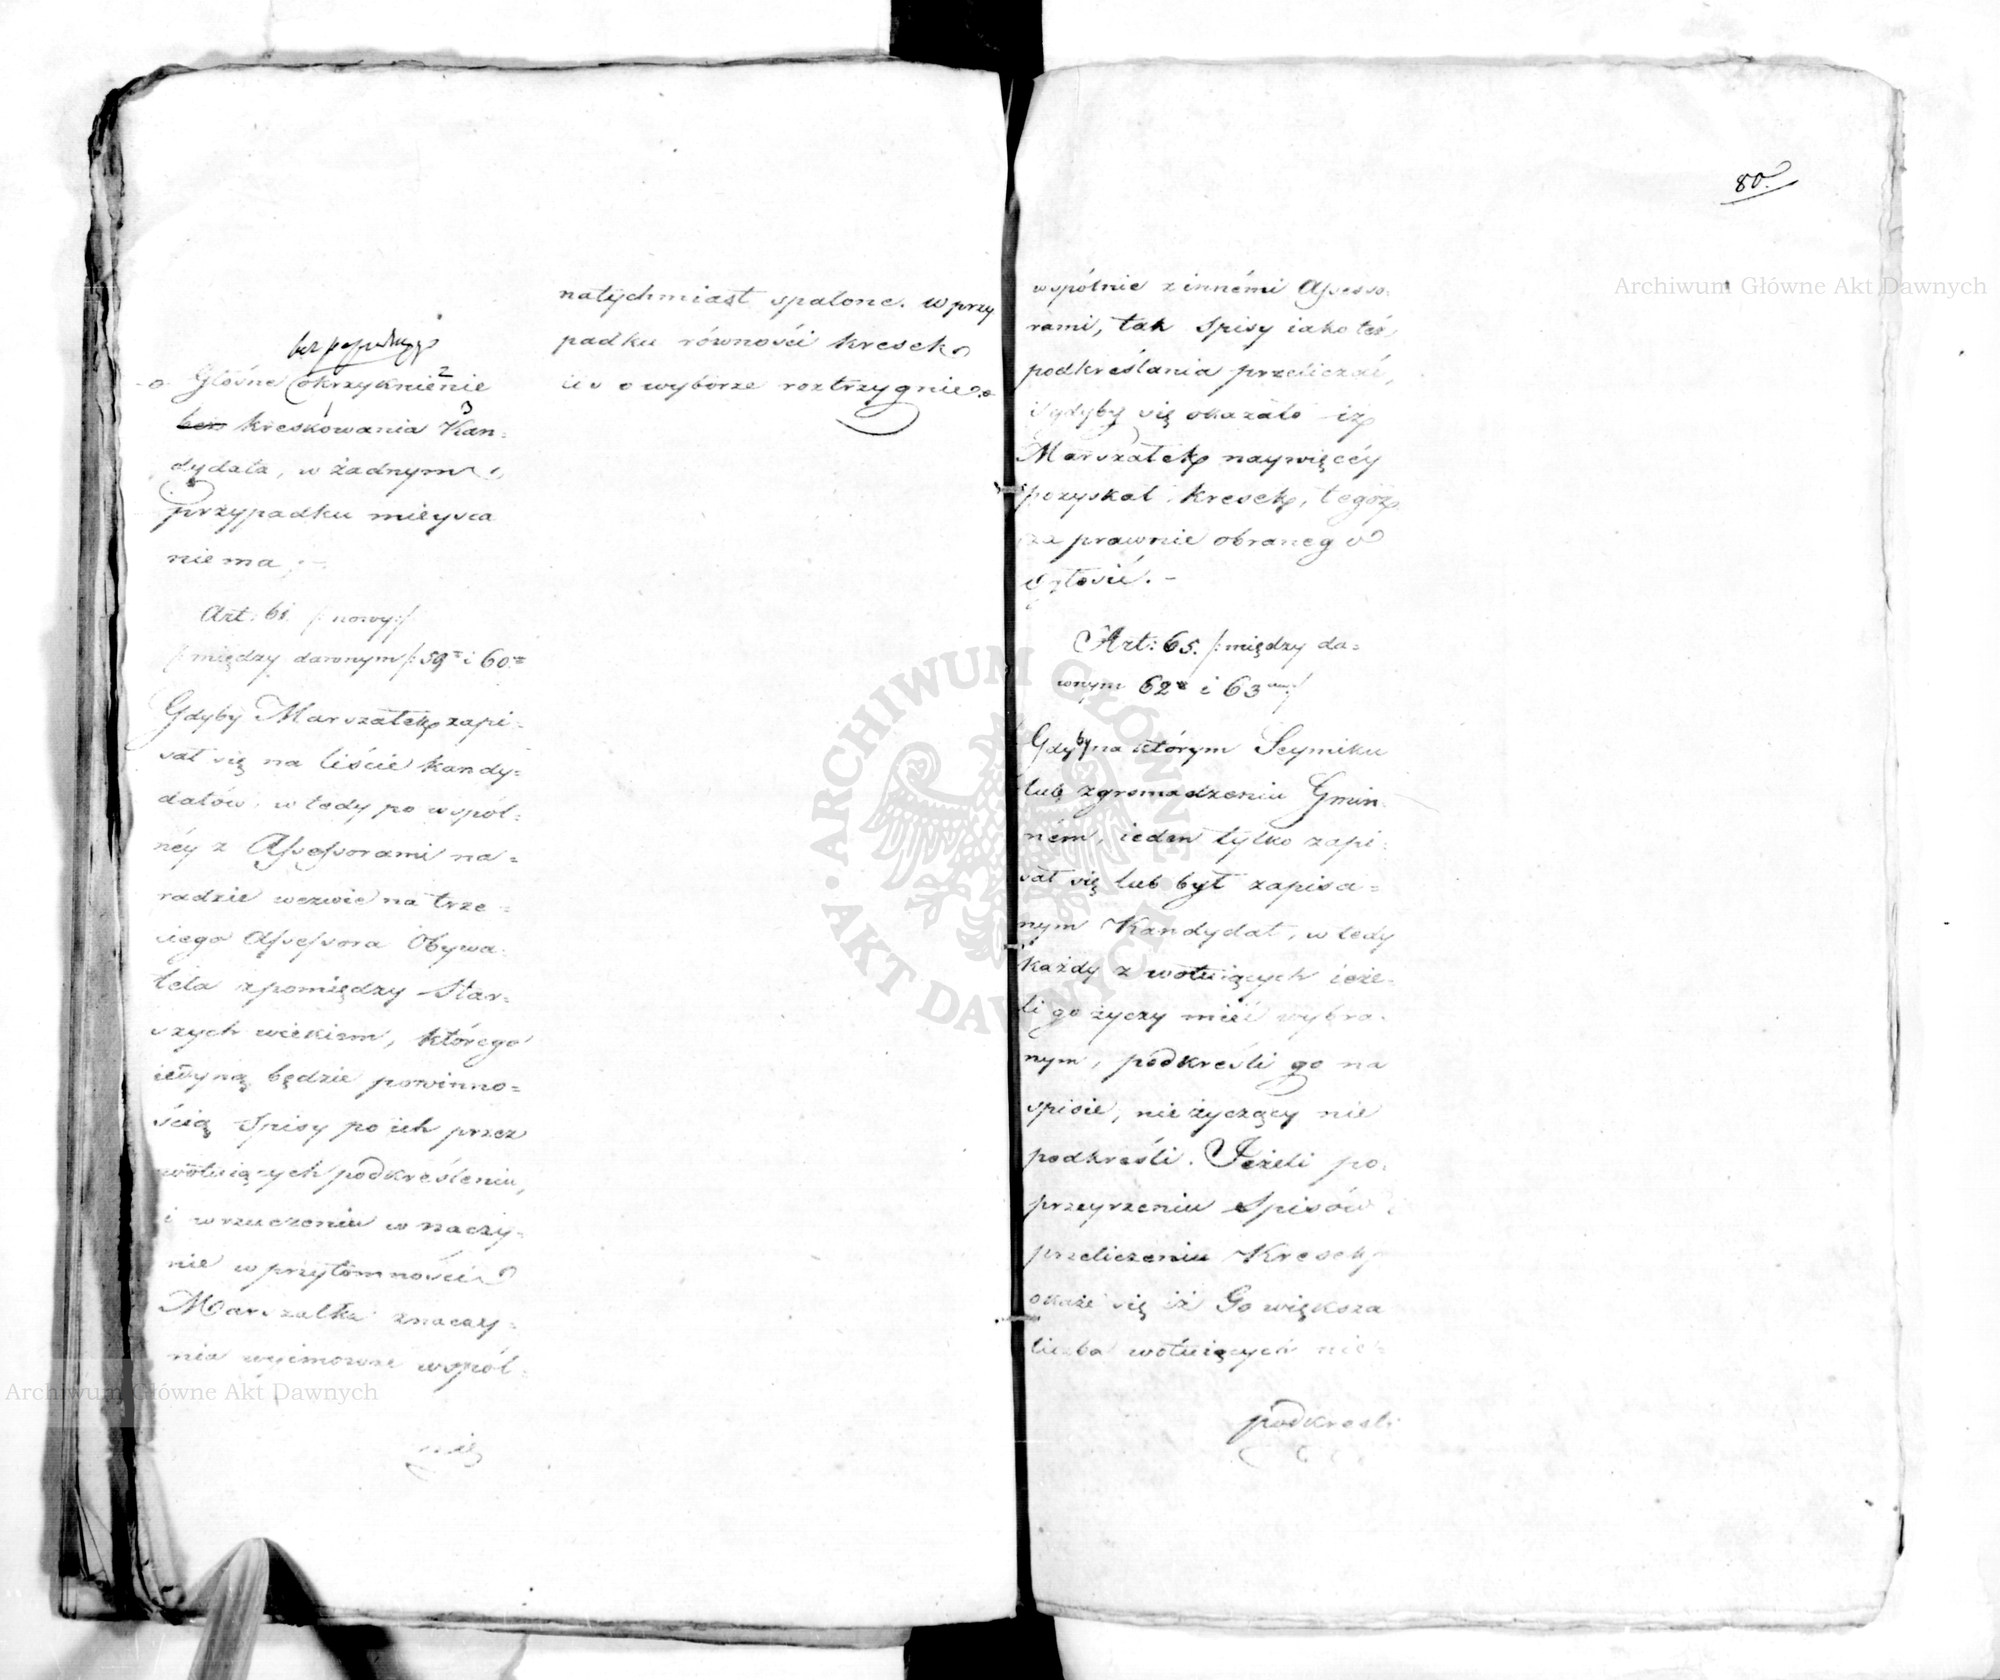 Głośne okrzyknienie 2
bez kreskowania Kan= 3
dydata, w żadnym
przypadku mieysca
niema. –
Art: 61. /: nowy :/
/: między dawnym /: 59m i 60m
Gdyby Marszałek zapi=
sał się na liście kandy=
datów, wtedy po wspól=
néy z Assessorami na=
radzie wezwie na trze=
ciego Assessora Obywa=
tela zpomiędzy Star=
szych wiekiem, którego
iedyną będzie powinno=
ścią Spisy po ich przez
wotuiących podkreśleniu,
i wrzuceniu w naczy=
nie w przytomności
Marszałka z naczy=
nia wyimować wspól=
nie
natychmiast spalone. W przy
padku równości kresek
los o wyborze roztrzygnie.
80.
wspólnie z innémi Assesso=
rami, tak Spisy iako też
podkreślania przeliczać,
i gdyby się okazało iż
Marszałek naywięcéy
pozyskał kresek, tegoż
za prawnie obranego
ogłosić. –
Art: 65. /: między da=
wnym 62m i 63m :/
Gdyby na którym Seymiku
lub zgromadzeniu Gmin=
ném, ieden tylko zapi=
sał się lub był zapisa=
nym Kandydat, wtedy
każdy z wotuiących ieże=
li go życzy mieć wybra=
nym, podkreśli go na
spisie, nie życzący nie
podkreśli. Jeżeli po
przeyrzeniu Spisów i
przeliczeniu Kresek
okaże się iż Go większa
liczba wotuiących nie
podkreśli
Archiwum Główne Akt Dawnych
Archiwum Główne Akt Dawnych
ARCHIWUM GŁÓWNE • AKT DAWNYCH •